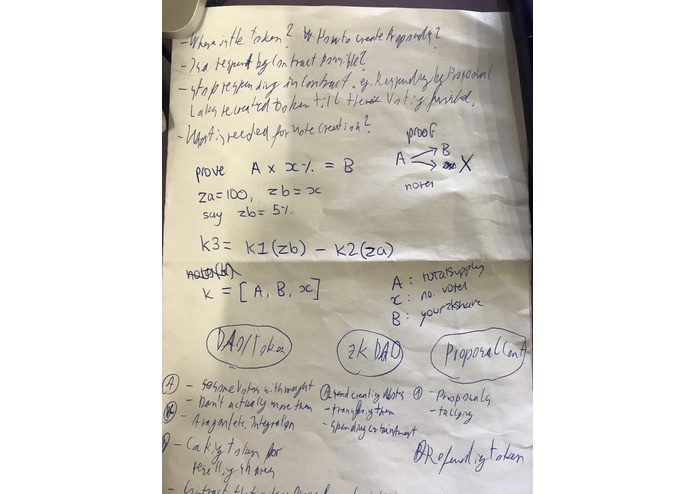 - Where is the token? How to create Proposals?
- Is a respend by contract possible?
- stop respending in contract. eg. Responding by Proposal
token till there's Voting finished.
- What is needed for note creation?
proof
prove A x x% = B
A B
X
notes
za=100, zb=x
say zb=5%
k3= k1(zb) - k2(za)
k = [A, B, x]
A: total supply
x: no. votes
B: your zk share
DAO/Token
zk DAO
Proposal Cont
A - votes with weight
- Don't actually move them
- Aragon Integration
- token for
reselling shares
creating Notes
- transferring them
- spending
- Proposals
- tallying
Refunding token
- Contract that